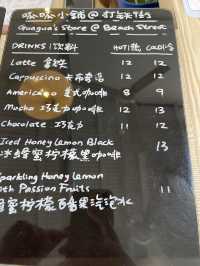 呱呱小舖@打銕街
Guagua's Store @ Beach Street
DRINKS 飲料 HOT/熱 COLD/冷
Latte 拿鉄 12 12
Cappuccino 卡布奇诺 12 12
Americano 美式咖啡 8 9
Mocha 巧克力咖啡 12 13
Chocolate 巧克力 11 12
Iced Honey Lemon Black 13
冰蜂蜜柠檬黑咖啡
Sparkling Honey Lemon
with Passion Fruits 11
蜂蜜柠檬百香果汽泡水